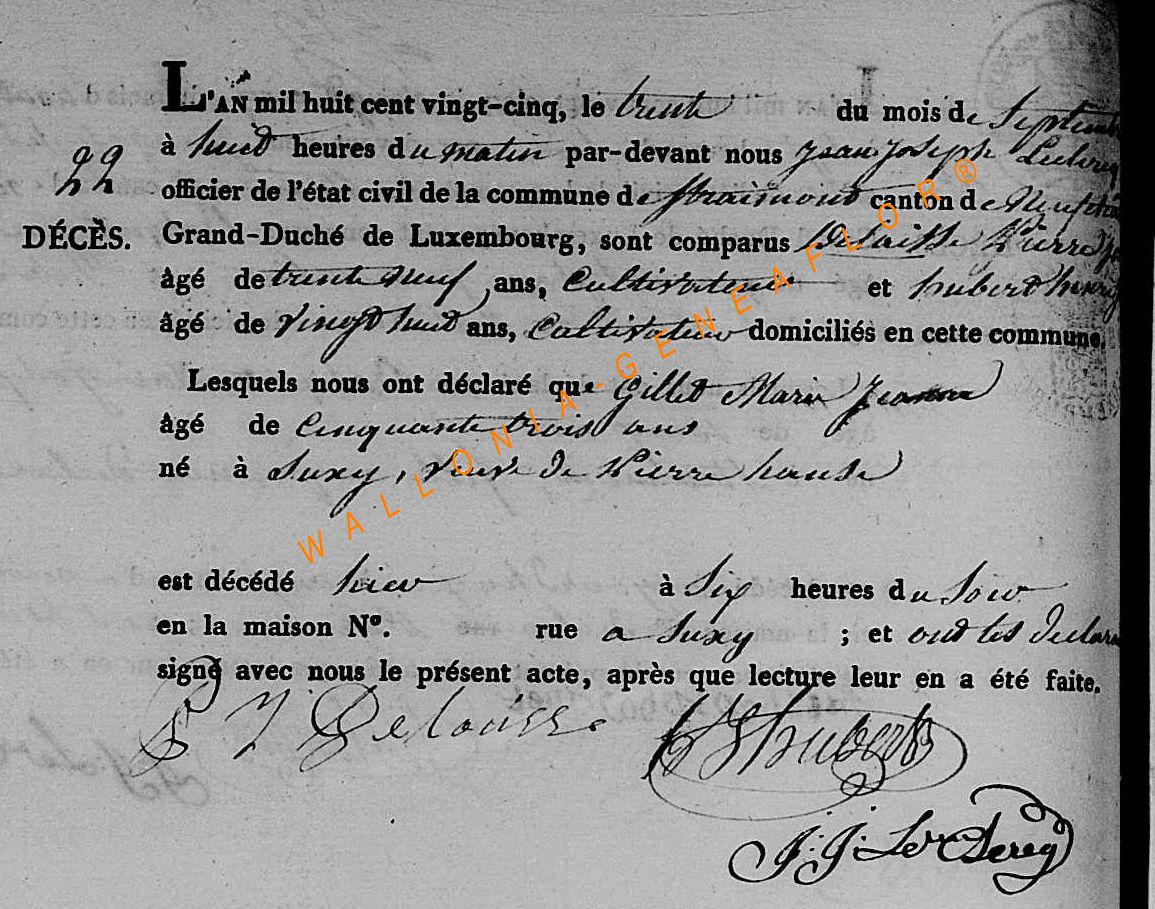 L'AN mil huit cent vingt-cinq, le trente du mois de Septemb
à huit heures du matin par-devant nous Jean Joseph Leclercq
22
officier de l'état civil de la commune de Straimont canton de Neufchat
DÉCÈS.
Grand-Duché de Luxembourg, sont comparus Delaisse Pierre
âgé de trente neuf ans, Cultivateur et hubert henry
âgé de vingt huit ans, Cultivateur domiciliés en cette commune.
Lesquels nous ont déclaré que Gillet Marie Jeanne
âgé de Cinquante trois ans
né à Suxy, veuve de Pierre hause
est décédé hier à Six heures du Soir
en la maison Nº. rue a Suxy ; et ont les declara
signé avec nous le présent acte, après que lecture leur en a été faite.
P J Delaisse
hubert
J. J. Leclercq
WALLONIA-GENEAFLOR®